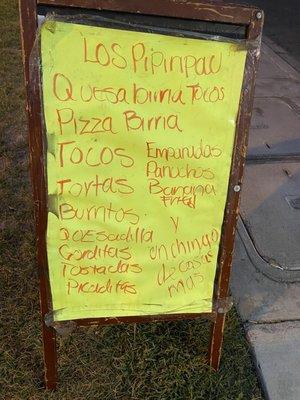 Los Pipinpau
Quesabirria Tacos
Pizza Birria
Tacos
Tortas
Burritos
QUESadilla
Gorditas
Tostadas
Picaditas
Empanadas
Panuchos
Banana
Frita
y
un chingo
de cosas
mas